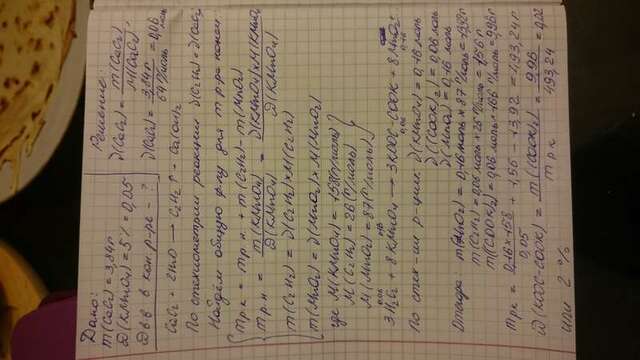 Дано:
m(CaC2) = 3,84г
ω(KMnO4) = 5% = 0,05
ω в-в в кон. р-ре - ?
Решение:
ν(CaC2) = m(CaC2) / M(CaC2);
ν(CaC2) = 3,84г / 64 г/моль = 0,06 моль
CaC2 + 2H2O → C2H2↑ + Ca(OH)2
По стехиометрии реакции ν(C2H2) = ν(CaC2)
Найдём общую ф-лу для m р-ра конеч.
m р.к = m р.н. + m(C2H2) - m(MnO2)
m р.н = m(KMnO4) / ω(KMnO4) = ν(KMnO4)×M(KMnO4) / ω(KMnO4)
m(C2H2) = ν(C2H2)×M(C2H2)
m(MnO2) = ν(MnO2)×M(MnO2)
где M(KMnO4) = 158(г/моль)
M(C2H2) = 26(г/моль)
M(MnO2) = 87(г/моль)
3C2H2 + 8KMnO4 → 3KOOC-COOK + 8MnO2
По стех-ии р-ции: ν(KMnO4) = 0,16 моль
ν((COOK)2) = 0,06 моль
ν(MnO2) = 0,16 моль
Отсюда: m(MnO2) = 0,16 моль × 87 г/моль = 13,92г
m(C2H2) = 0,06 моль × 26 г/моль = 1,56г
m((COOK)2) = 0,06 моль × 166 г/моль = 9,96г
m р.к = 0,16×158 / 0,05 + 1,56 - 13,92 = 493,24г
ω(KOOC-COOK) = m((COOK)2) / m р.к = 9,96 / 493,24 = 0,02
или 2 %